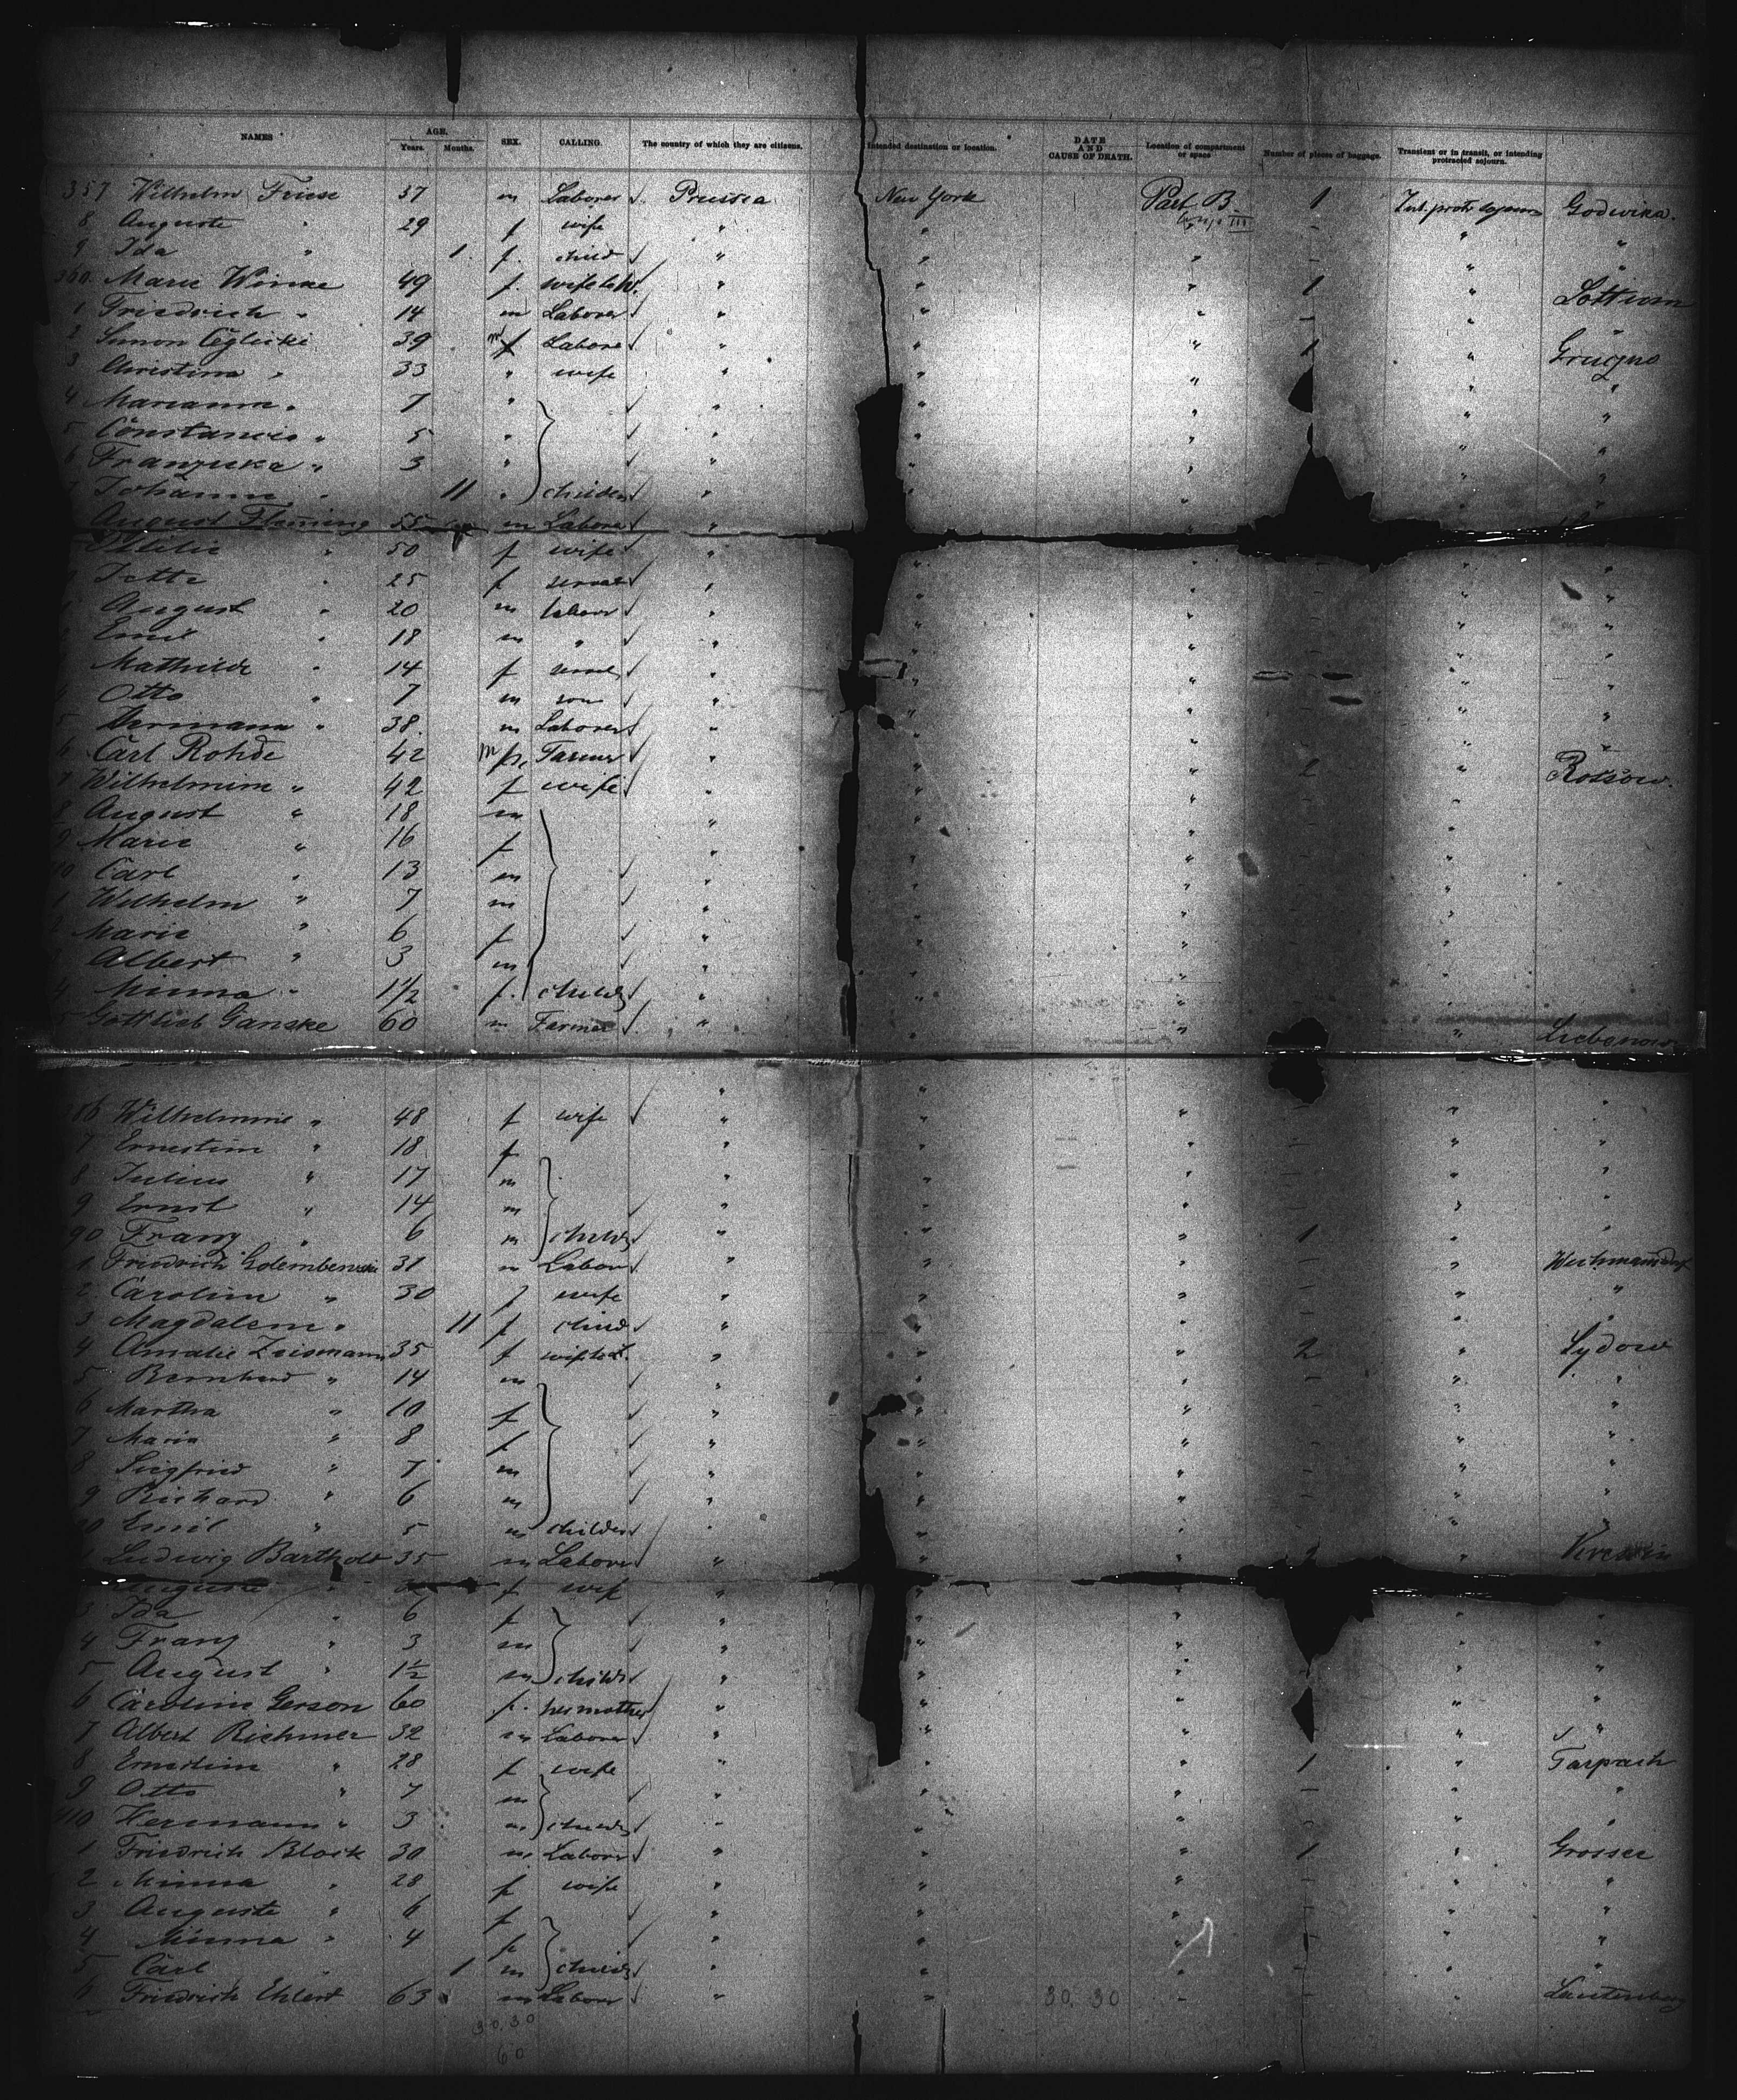 NAMES AGE. Years. Months. SEX. CALLING. The country of which they are citizens. Intended destination or location. DATE AND CAUSE OF DEATH. Location of compartment or space Number of pieces of baggage. Transient or in transit, or intending protracted sojourn.
357 Wilhelm Friese 37 m Laborer Prussia New York Part B. 1 Godwika.
8 Auguste " 29 f wife " " III - " "
9 Ida " 1 f. child " " " - " "
360. Marie Winke 49 f. wife to W. " " " 1 "
1 Friedrich " 14 m Laborer " " " - "
2 Simon 39 m f Labore " " " 1 "
3 Christina " 33 " wife " " " - " "
4 Marianna " 7 " " " " - " "
5 Constancia " 5 " " " " " "
6 Franziska " 3 " " " " " "
7 Johanna " 11 " children " " " " "
August Fleming 55 m Labore "
" 50 f wife " " " "
Jette " 25 f servant " " " - " "
August " 20 m labour " " " - " "
Emil " 18 m " " " " - " "
Mathilde " 14 f " " " - " "
4 Otto " 7 m son " " " " "
5 Hermann " 38. m Laborer " " " - " "
6 Carl Rohde 42 m Farmer " " " 2 " Rossow.
7 Wilhelmine " 42 f wife " " " -
8 August " 18 m " " " -
9 Marie " 16 f " " " -
80 Carl " 13 m " " " -
1 Wilhelm " 7 m " " " -
2 Marie " 6 f " " " -
3 Albert " 3 m " " " -
4 Minna " 1 1/2 f. childr " " "
5 Gottlieb Ganske 60 m Farmer " " " " Liebenow
386 Wilhelmine " 48 f wife " " " - " "
7 Ernestine " 18 f " " " - " "
8 Julius " 17 m " " " - " "
9 Ernst " 14 m " " " - " "
390 Franz " 6 m childr " " " 1 " "
1 Friedrich Golembewski 31 m Labour " " " - "
2 Caroline " 30 f wife " " " - " "
3 Magdalene " 11 f child " " " - " "
4 Amalie Zeismann 35 f " " " 2 " Lydow
5 Bernhard " 14 m " " " - " "
6 Martha " 10 f " " " - " "
7 Maria " 8 f " " " - " "
8 Siegfried " 7 m " " " - " "
9 Richard " 6 m " " " - " "
00 Emil " 5 m children " " " - "
1 Ludwig Barthold 35 m Labour " " 2 "
Auguste " f wife "
3 Ida " 6 f " " " " "
4 Franz " 3 m " " " " "
5 August " 1 1/2 m childr " " " " "
6 Caroline Gerson 60 f. her mother " " " " "
7 Albert Richmer 32 m Laborer " " " " "
8 Ernestine " 28 f wife " " " 1 " Tarpach
9 Otto " 7 m " " " - " "
410 Hermann " 3 m childr " " " - " "
1 Friedrich Block 30 m Laborer " " " 1 " Grossee
2 Minna " 28 f wife " " " - " "
3 Auguste " 6 f " " " - " "
4 Minna " 4 f " " " - " "
5 Carl " 1 m childr " " " - " "
6 Friedrich Ehlert 63 m Labour " " 30. 30 - - " Lautenberg
30.30
60